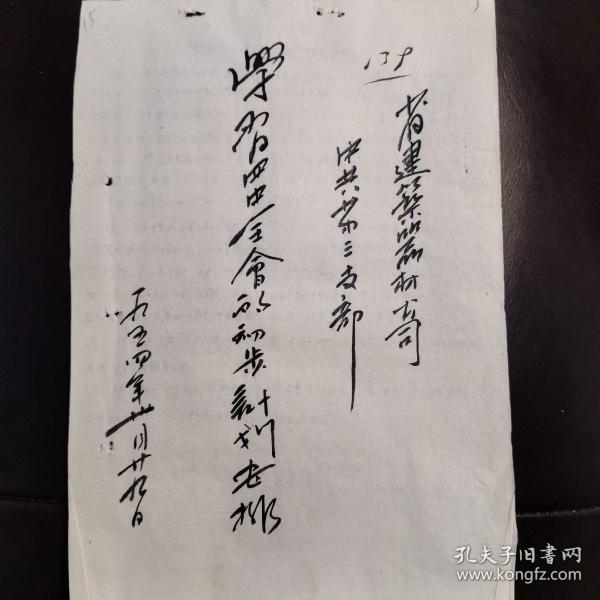 139
省建築器材
中共八 第三支部
學習四中全會的初步計划安排
一九五四年 月廿九日
15
孔夫子旧书网
www.kongfz.com